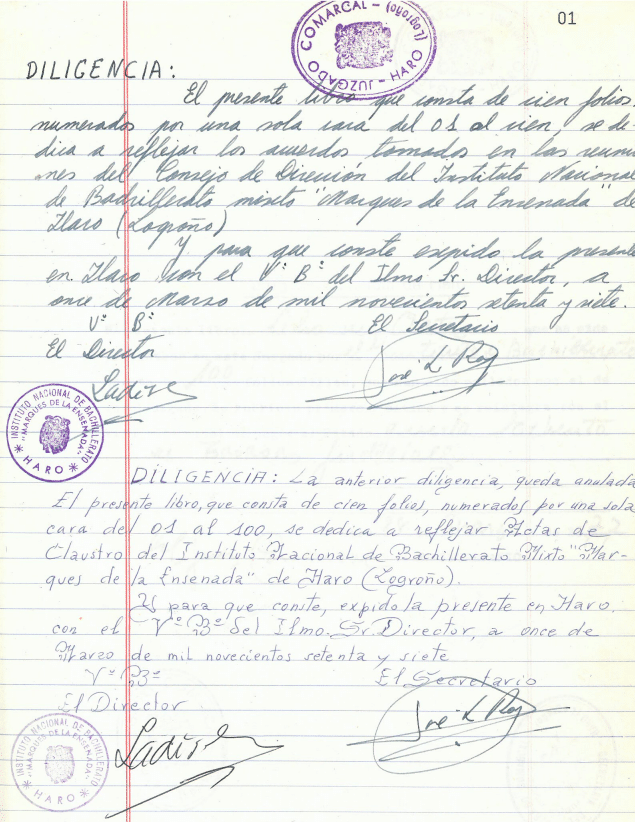 01
JUZGADO COMARCAL - HARO - (Logroño)
DILIGENCIA:
El presente libro que consta de cien folios
numerados por una sola cara del 01 al cien, se de-
dica a reflejar los acuerdos tomados en las reunio
nes del Consejo de Dirección del Instituto Nacional
de Bachillerato mixto "Marques de la Ensenada" de
Haro (Logroño)
Y para que conste expido la presente
en Haro con el Vº Bº del Ilmo Sr. Director, a
once de Marzo de mil novecientos setenta y siete.
Vº Bº El Secretario
El Director
Ladis José L Rey
INSTITUTO NACIONAL DE BACHILLERATO
"MARQUES DE LA ENSENADA"
* HARO *
DILIGENCIA: La anterior diligencia, queda anulada
El presente libro, que consta de cien folios, numerados por una sola
cara del 01 al 100, se dedica a reflejar Actas de
Claustro del Instituto Nacional de Bachillerato Mixto "Mar-
ques de la Ensenada" de Haro (Logroño).
Y para que conste, expido la presente en Haro,
con el Vº Bº del Ilmo. Sr. Director, a once de
Marzo de mil novecientos setenta y siete
Vº Bº El Secretario
El Director
Ladis José L Rey
INSTITUTO NACIONAL DE BACHILLERATO
"MARQUES DE LA ENSENADA"
* HARO *